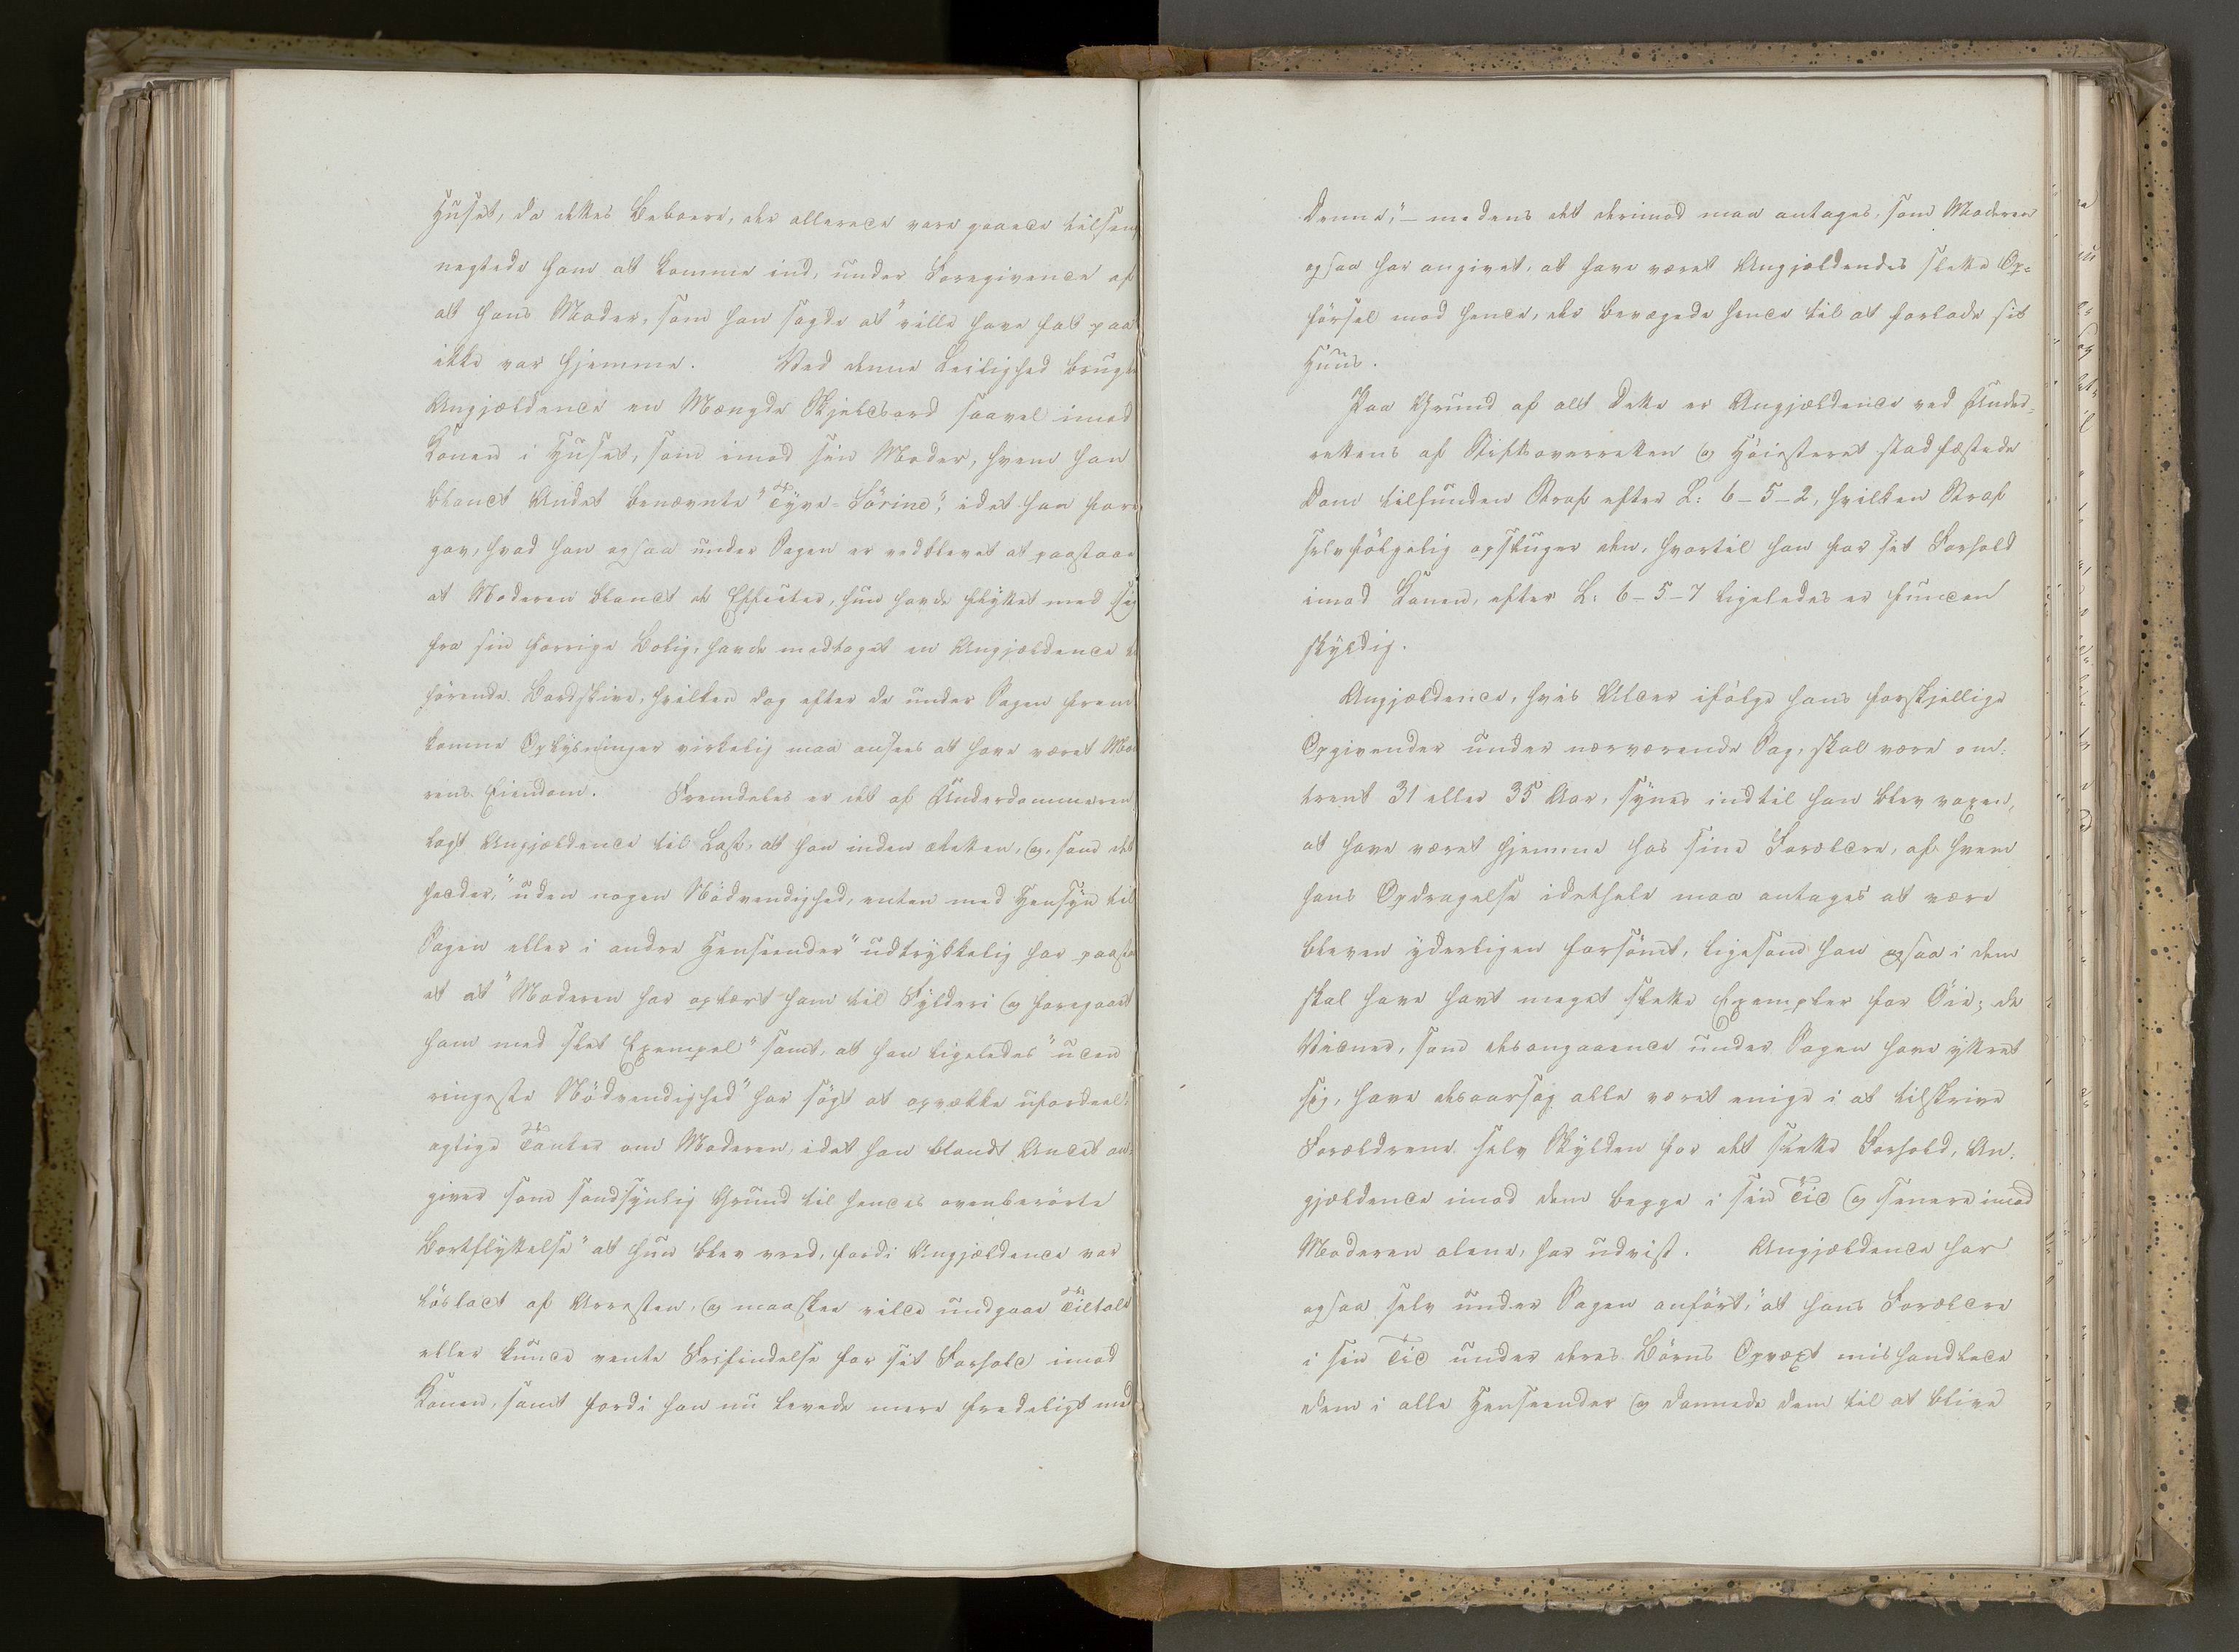 Huset, da dettes Beboere, der allerede vare gaaede tilseng
negtede ham at komme ind, under Foregivende af
at hans Moder, som han sagde at "ville have fat paa"
ikke var hjemme. Ved denne Leilighed brugte
Angjældende en Mængde Skjeldsord saavel imod
Konen i Huset, som imod sin Moder, hvem han
blandt Andet benævnte "Tyve-Sörine", idet han fore
gav, hvad han ogsaa under Sagen er vedblevet at paastaae
at Moderen blandt de Effecter, hun havde flyttet med sig
fra sin forrige Bolig, havde medtaget en Angjældende til
hörende Bordskive, hvilken dog efter de under Sagen frem
komne Oplysninger virkelig maa ansees at have været Mode
rens Eiendom. Fremdeles er det af Underdommeren
lagt Angjældende til Last, at han inden Retten, og, som det
hedder, "uden nogen Nödvendighed, enten med Hensyn til
Sagen eller i andre Henseender" udtrykkelig har paasta
et at "Moderen har oplært ham til Fylderi og foregaaet
ham med slet Exempel" samt, at han ligeledes "uden
ringeste Nödvendighed" har sögt at opvække ufordeel-
agtige Tanker om Moderen, idet han blandt Andet an-
giver som sandsynlig Grund til hendes ovenberörte
Bortflyttelse "at hun blev vred, fordi Angjældende var
löslact af Arresten, og maaskee vilde undgaae Tiltale
eller kunde vente Frifindelse for sit Forhold imod
Konen, samt fordi han nu levede mere fredeligt med
Denne", – medens det derimod maa antages, som Moderen
ogsaa har angivet, at have været Angjældendes slette Op-
försel mod hende, der bevægede hende til at forlade sit
Huus.
Paa Grund af alt Dette er Angjældende ved Under-
rettens af Stiftsoverretten og Höiesteret stadfæstede
Dom tilfunden Straf efter L: 6-5-2, hvilken Straf
selvfölgelig opsluger den, hvortil han for sit Forhold
imod Konen, efter L: 6-5-7 ligeledes er funden
skyldig.
Angjældende, hvis Alder ifölge hans forskjellige
Opgivender under nærværende Sag, skal være om-
trent 31 eller 35 Aar, synes indtil han blev voxen,
at have været hjemme hos sine Forældre, af hvem
hans Opdragelse idethele maa antages at være
bleven yderligen forsömt, ligesom han ogsaa i dem
skal have havt meget slette Exempler for Öie; de
Vidner, som desangaaende under Sagen have yttret
sig, have desaarsag alle været enige i at tilskrive
Forældrene selv Skylden for det slette Forhold, An-
gjældende imod dem begge i sin Tid og senere imod
Moderen alene, har udvist. Angjældende har
ogsaa selv under Sagen anfört, "at hans Forældre
i sin Tid under deres Börns Opvæxt mishandlede
dem i alle Henseender og dannede dem til at blive